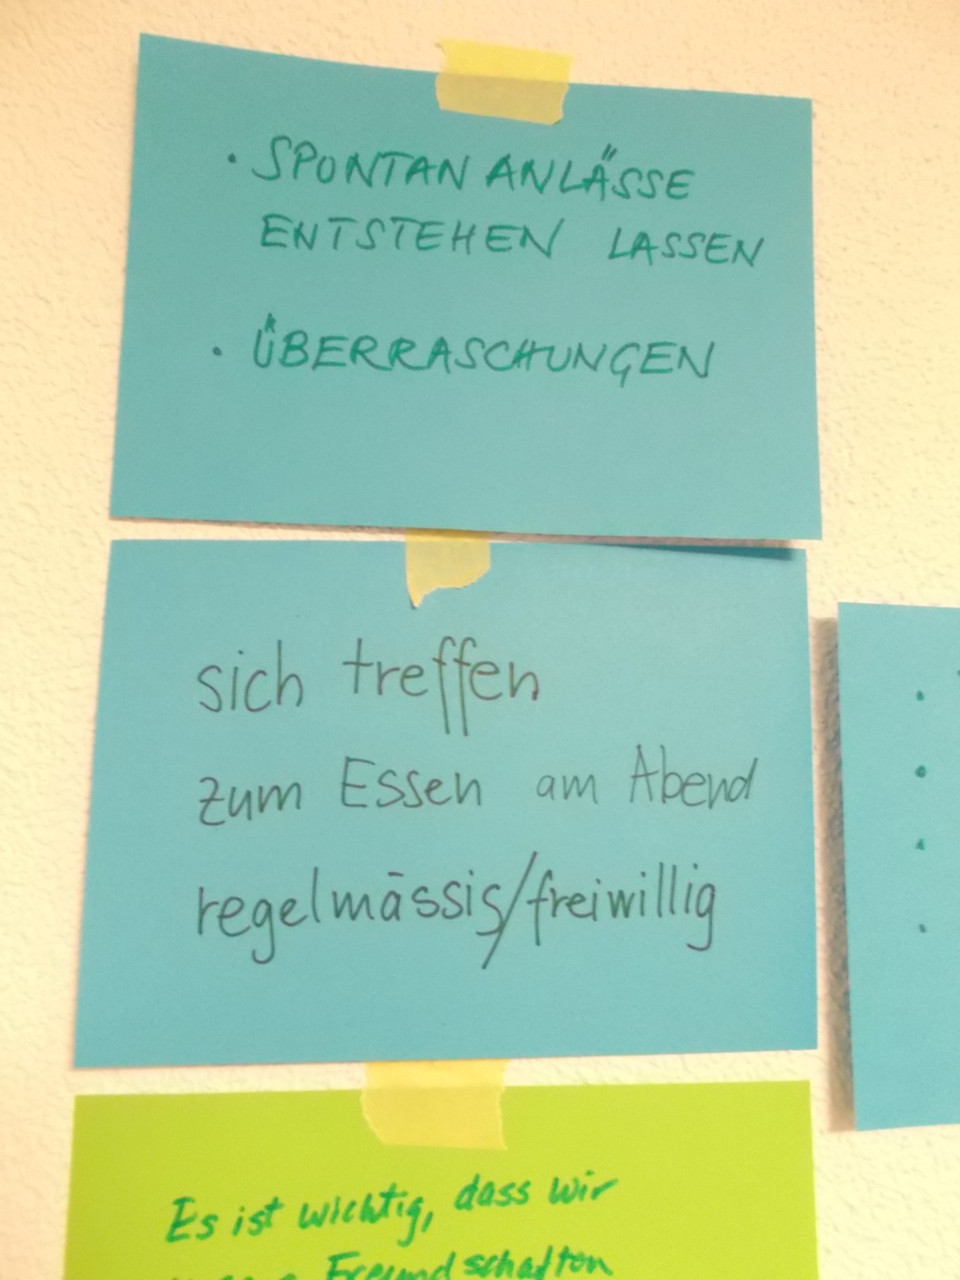 · SPONTAN ANLÄSSE
ENTSTEHEN LASSEN
· ÜBERRASCHUNGEN
sich treffen
zum Essen am Abend
regelmässig/freiwillig
Es ist wichtig, dass wir
Freundschaften